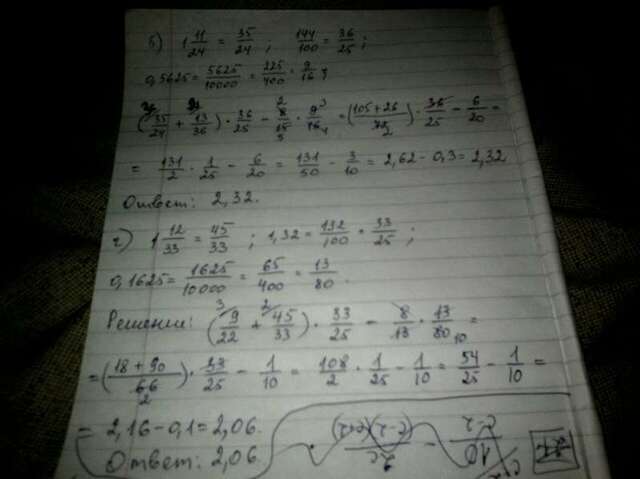 б) 1 11/24 = 35/24 ; 144/100 = 36/25 ;
0,5625 = 5625/10000 = 225/400 = 9/16 ;
(35/24 + 13/36) · 36/25 - 8/15 · 9/16 = (105+26/72) · 36/25 - 6/20 =
= 131/2 · 1/25 - 6/20 = 131/50 - 3/10 = 2,62 - 0,3 = 2,32
Ответ: 2,32.
г) 1 12/33 = 45/33 ; 1,32 = 132/100 = 33/25 ;
0,1625 = 1625/10000 = 65/400 = 13/80 .
Решение: (9/22 + 45/33) · 33/25 - 8/13 · 13/80 =
= (18+90/66) · 33/25 - 1/10 = 108/2 · 1/25 - 1/10 = 54/25 - 1/10 =
= 2,16 - 0,1 = 2,06.
Ответ: 2,06.